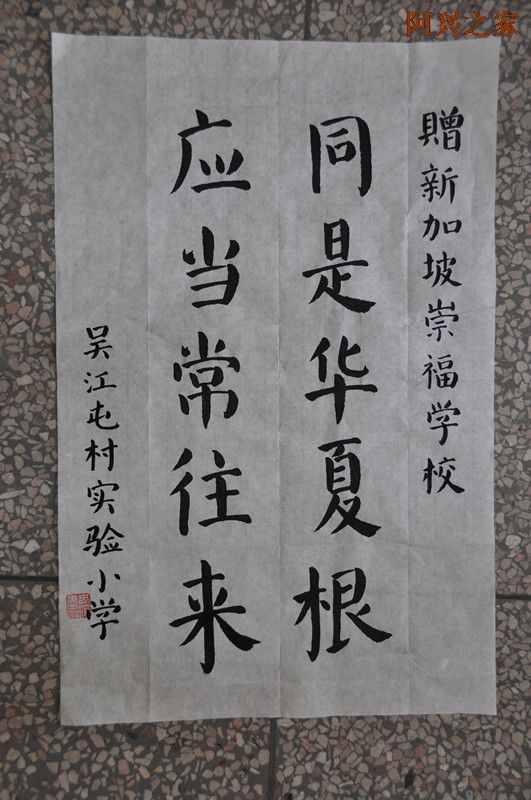 阿兴之家
贈新加坡崇福学校
同是华夏根
应当常往来
吴江屯村实验小学